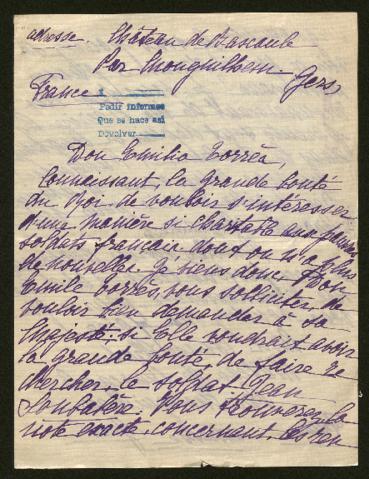 adresse. Château de Bascaule
Par Monguilhem
Gers
France
1
Pedir informes
Que se hace asi
Devolver
Don Emilio Torrès,
Connaissant, la grande bonté
du Roi de vouloir s'intéresser
d'une manière si charitable aux pauvres
soldats français dont on n'a plus
de nouvelle. Je viens donc, Don
Emile Torrès, vous solliciter, de
vouloir bien demander à sa
Majesté, si Elle voudrait avoir
la grande bonté de faire re
chercher, le soldat Jean
Soubabère. Vous trouverez la
note exacte, concernant, les ren